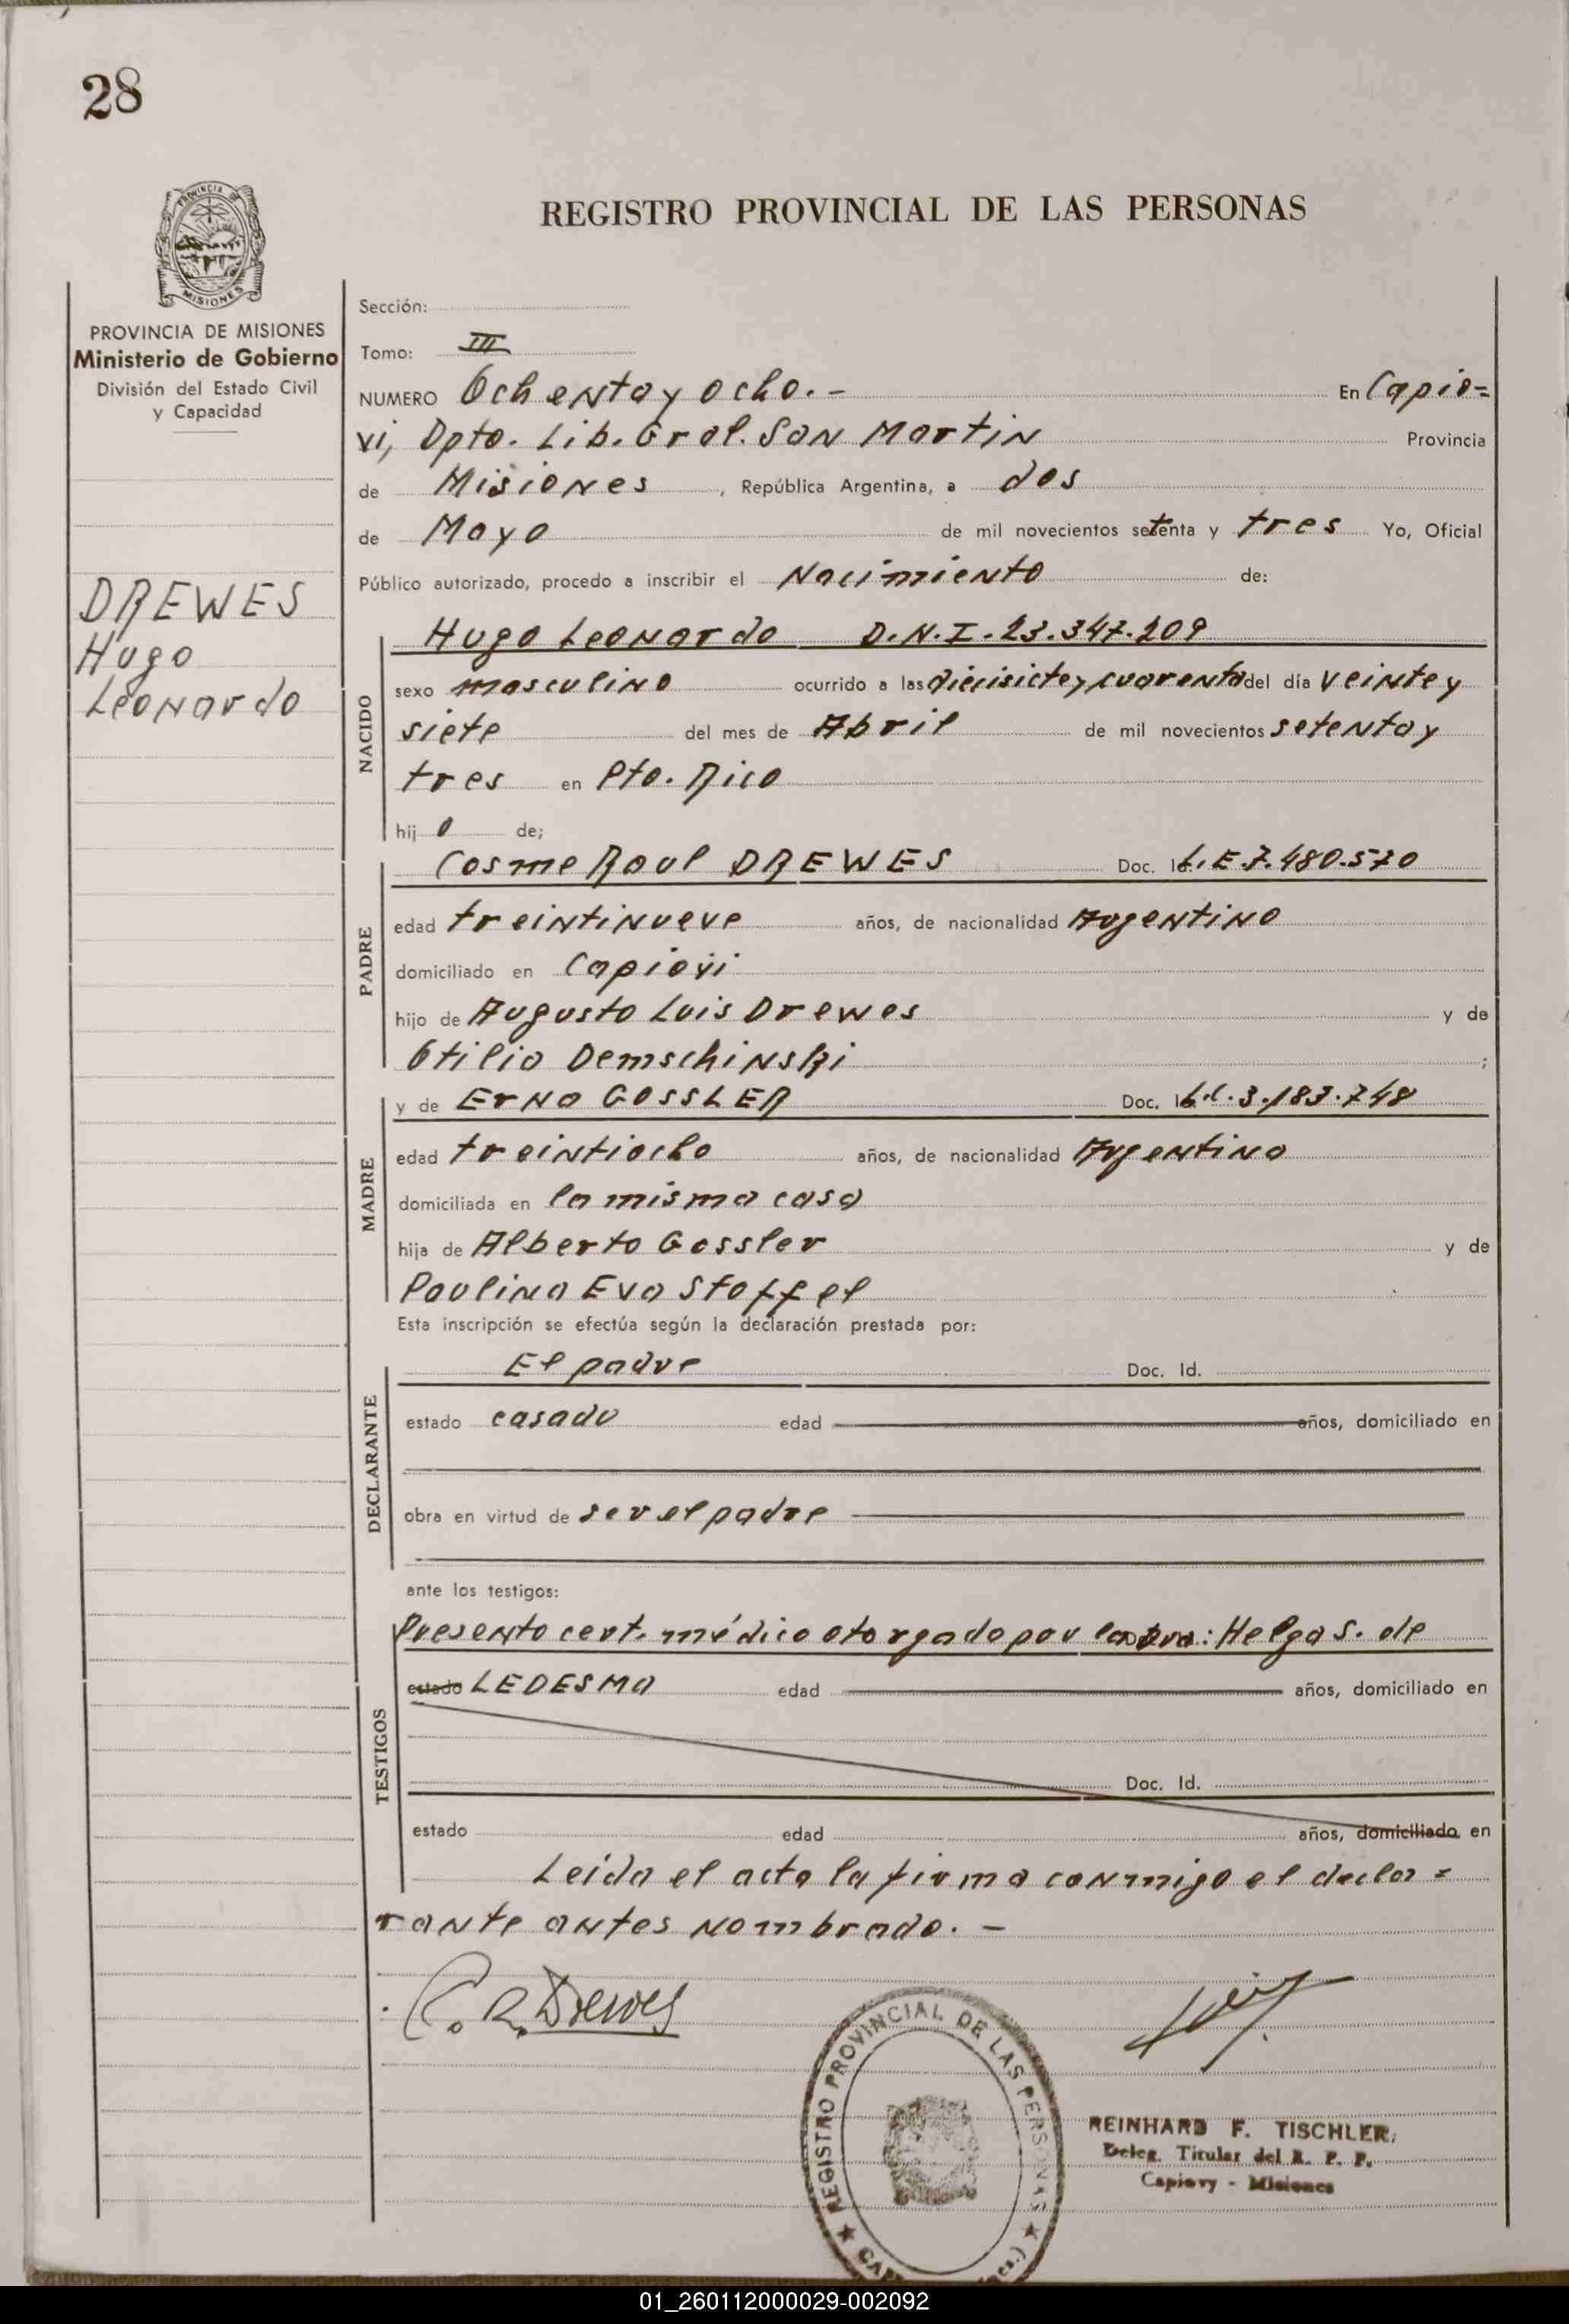 28
PROVINCIA DE
MISIONES
REGISTRO PROVINCIAL DE LAS PERSONAS
PROVINCIA DE MISIONES
Ministerio de Gobierno
División del Estado Civil
y Capacidad
DREWES
Hugo
Leonardo
Sección:
Tomo: III
NUMERO Ochenta y ocho.- En Capio=
vi, Dpto. Lib. Gral. San Martin Provincia
de Misiones, República Argentina, a dos
de Mayo de mil novecientos setenta y tres Yo, Oficial
Público autorizado, procedo a inscribir el Nacimiento de:
NACIDO
Hugo Leonardo D.N.I. 23.347.209
sexo masculino ocurrido a las diecisiete y cuarenta del día veinte y
siete del mes de Abril de mil novecientos setenta y
tres en Pto. Rico
hijo de;
PADRE
Cosme Raul DREWES Doc. Id. L.E 7.480.570
edad treintinueve años, de nacionalidad Argentino
domiciliado en Capiovi
hijo de Augusto Luis Drewes y de
Otilia Demschinski ;
MADRE
y de Erna GOSSLER Doc. Id. L.C. 3.183.748
edad treintiocho años, de nacionalidad Argentina
domiciliada en la misma casa
hija de Alberto Gossler y de
Paulina Eva Stoffel
Esta inscripción se efectúa según la declaración prestada por:
DECLARANTE
El padre Doc. Id.
estado casado edad años, domiciliado en
obra en virtud de ser el padre
ante los testigos:
TESTIGOS
Presento cert. médico otorgado por la Dra: Helga S. de
estado LEDESMA edad años, domiciliado en
Doc. Id.
estado edad años, domiciliado en
Leida el acta la firma conmigo el decla=
rante antes nombrado.-
C. R. Drewes
REGISTRO PROVINCIAL DE LAS PERSONAS
REINHARD F. TISCHLER
Deleg. Titular del R. P. P.
Capiovy - Misiones
01_260112000029-002092